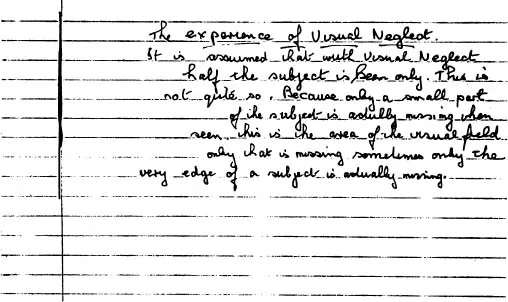 The experience of Visual Neglect.
It is assumed that with Visual Neglect
half the subject is Seen only. This is
not quite so. Because only a small part
of the subject is actully missing when
seen, this is the area of the visual field
only that is missing sometimes only the
very edge of a subject is actually missing.